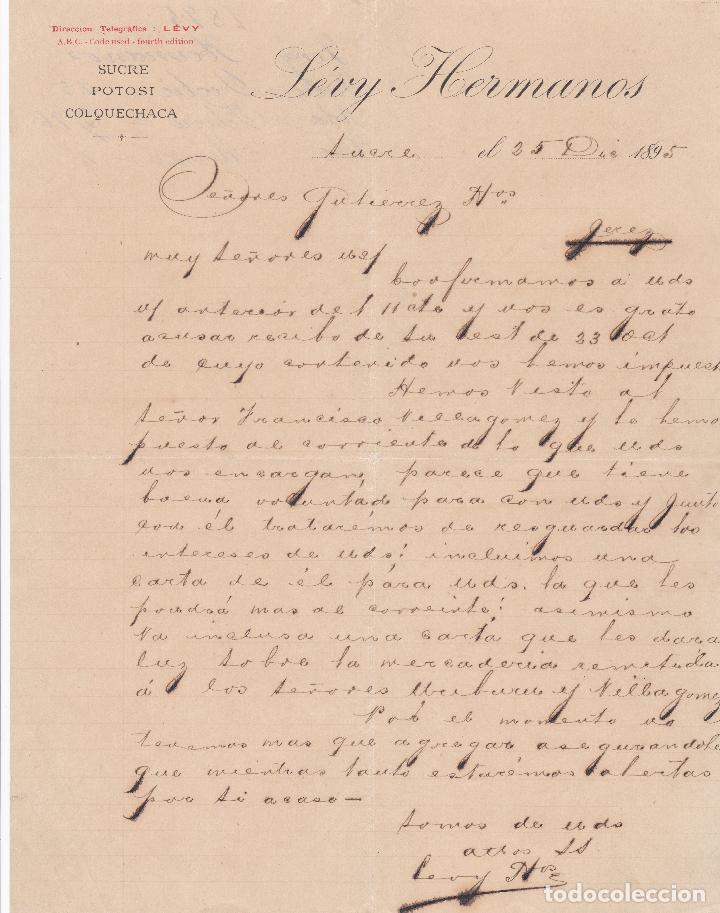 Direccion Telegráfica : LÉVY
A.B.C. - Code used - fourth edition
SUCRE
POTOSI
COLQUECHACA
Lévy Hermanos
Sucre el 25 Dic 1895
Señores Gutierrez Hos
Jerez
Muy señores
Confirmamos á Uds
anterior del 11 cte y nos es grato
acusar recibo de su est de 23 Oct
de cuyo contenido nos hemos impuest
Hemos visto al
señor Francisco Villagomez y le hemo
puesto al corriente de lo que Uds
nos encargan, parece que tiene
buena voluntád para con Uds y junto
con él tratarémos de resguardar los
intereses de Uds: incluimos una
carta de él pára Uds. la que les
pondrá mas al correinte: asimismo
va inclusa una carta que les dara
luz sobre la mercaderia remitida
á los señores Uriburu y Villagomez
Por el momento no
tenemos mas que agregar asegurandole
que mientras tanto estarémos alertas
por si acaso—
Somos de Uds
attos SS
Levy Hos
todocoleccion